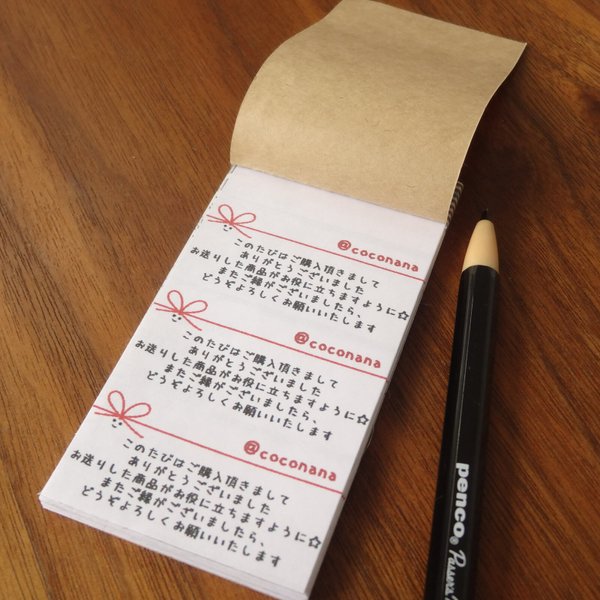 @coconana
このたびはご購入頂きまして
ありがとうございました
お送りした商品がお役に立ちますように☆
またご縁がございましたら、
どうぞよろしくお願いいたします
@coconana
このたびはご購入頂きまして
ありがとうございました
お送りした商品がお役に立ちますように☆
またご縁がございましたら、
どうぞよろしくお願いいたします
@coconana
このたびはご購入頂きまして
ありがとうございました
お送りした商品がお役に立ちますように☆
またご縁がございましたら、
どうぞよろしくお願いいたします
penco®